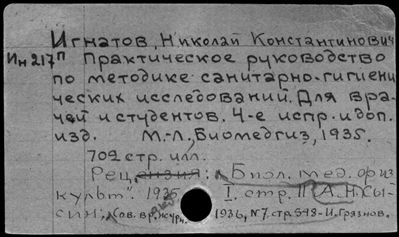 Игнатов, Николай Константинович
Ин 217 П Практическое руководство
по методике санитарно-гигиени
ческих исследований. Для вра-
чей и студентов. 4-е испр. и доп.
изд. М.-Л., Биомедгиз, 1935.
702 стр. илл.
Рец. „Биол. мед. физ
культ". 1936 I. стр. II (А. Н. Сы-
син; „Сов. вр. журн. 1936, N7. стр. 548-И. Грязнов.